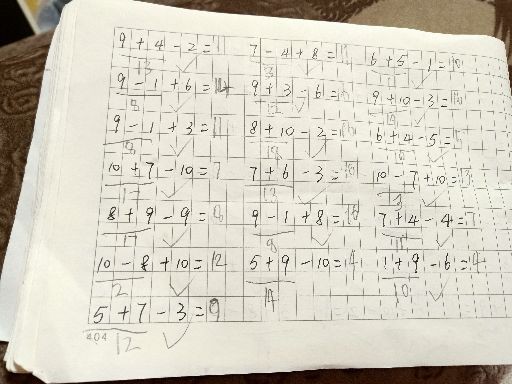 9 + 4 - 2 = 11
13
9 - 1 + 6 = 14
8
9 - 1 + 3 = 11
8
10 + 7 - 10 = 7
17
8 + 9 - 9 = 8
17
10 - 8 + 10 = 12
2
5 + 7 - 3 = 9
404 12
7 - 4 + 8 = 11
3
9 + 3 - 6 = 6
12
8 + 10 - 2 = 16
18
7 + 6 - 3 = 10
13
9 - 1 + 8 = 16
8
5 + 9 - 10 = 4
14
6 + 5 - 1 = 10
11
9 + 10 - 3 = 16
19
6 + 4 - 5 = 5
10
10 - 7 + 10 = 13
3
7 + 4 - 4 = 7
11
1 + 9 - 6 = 4
10